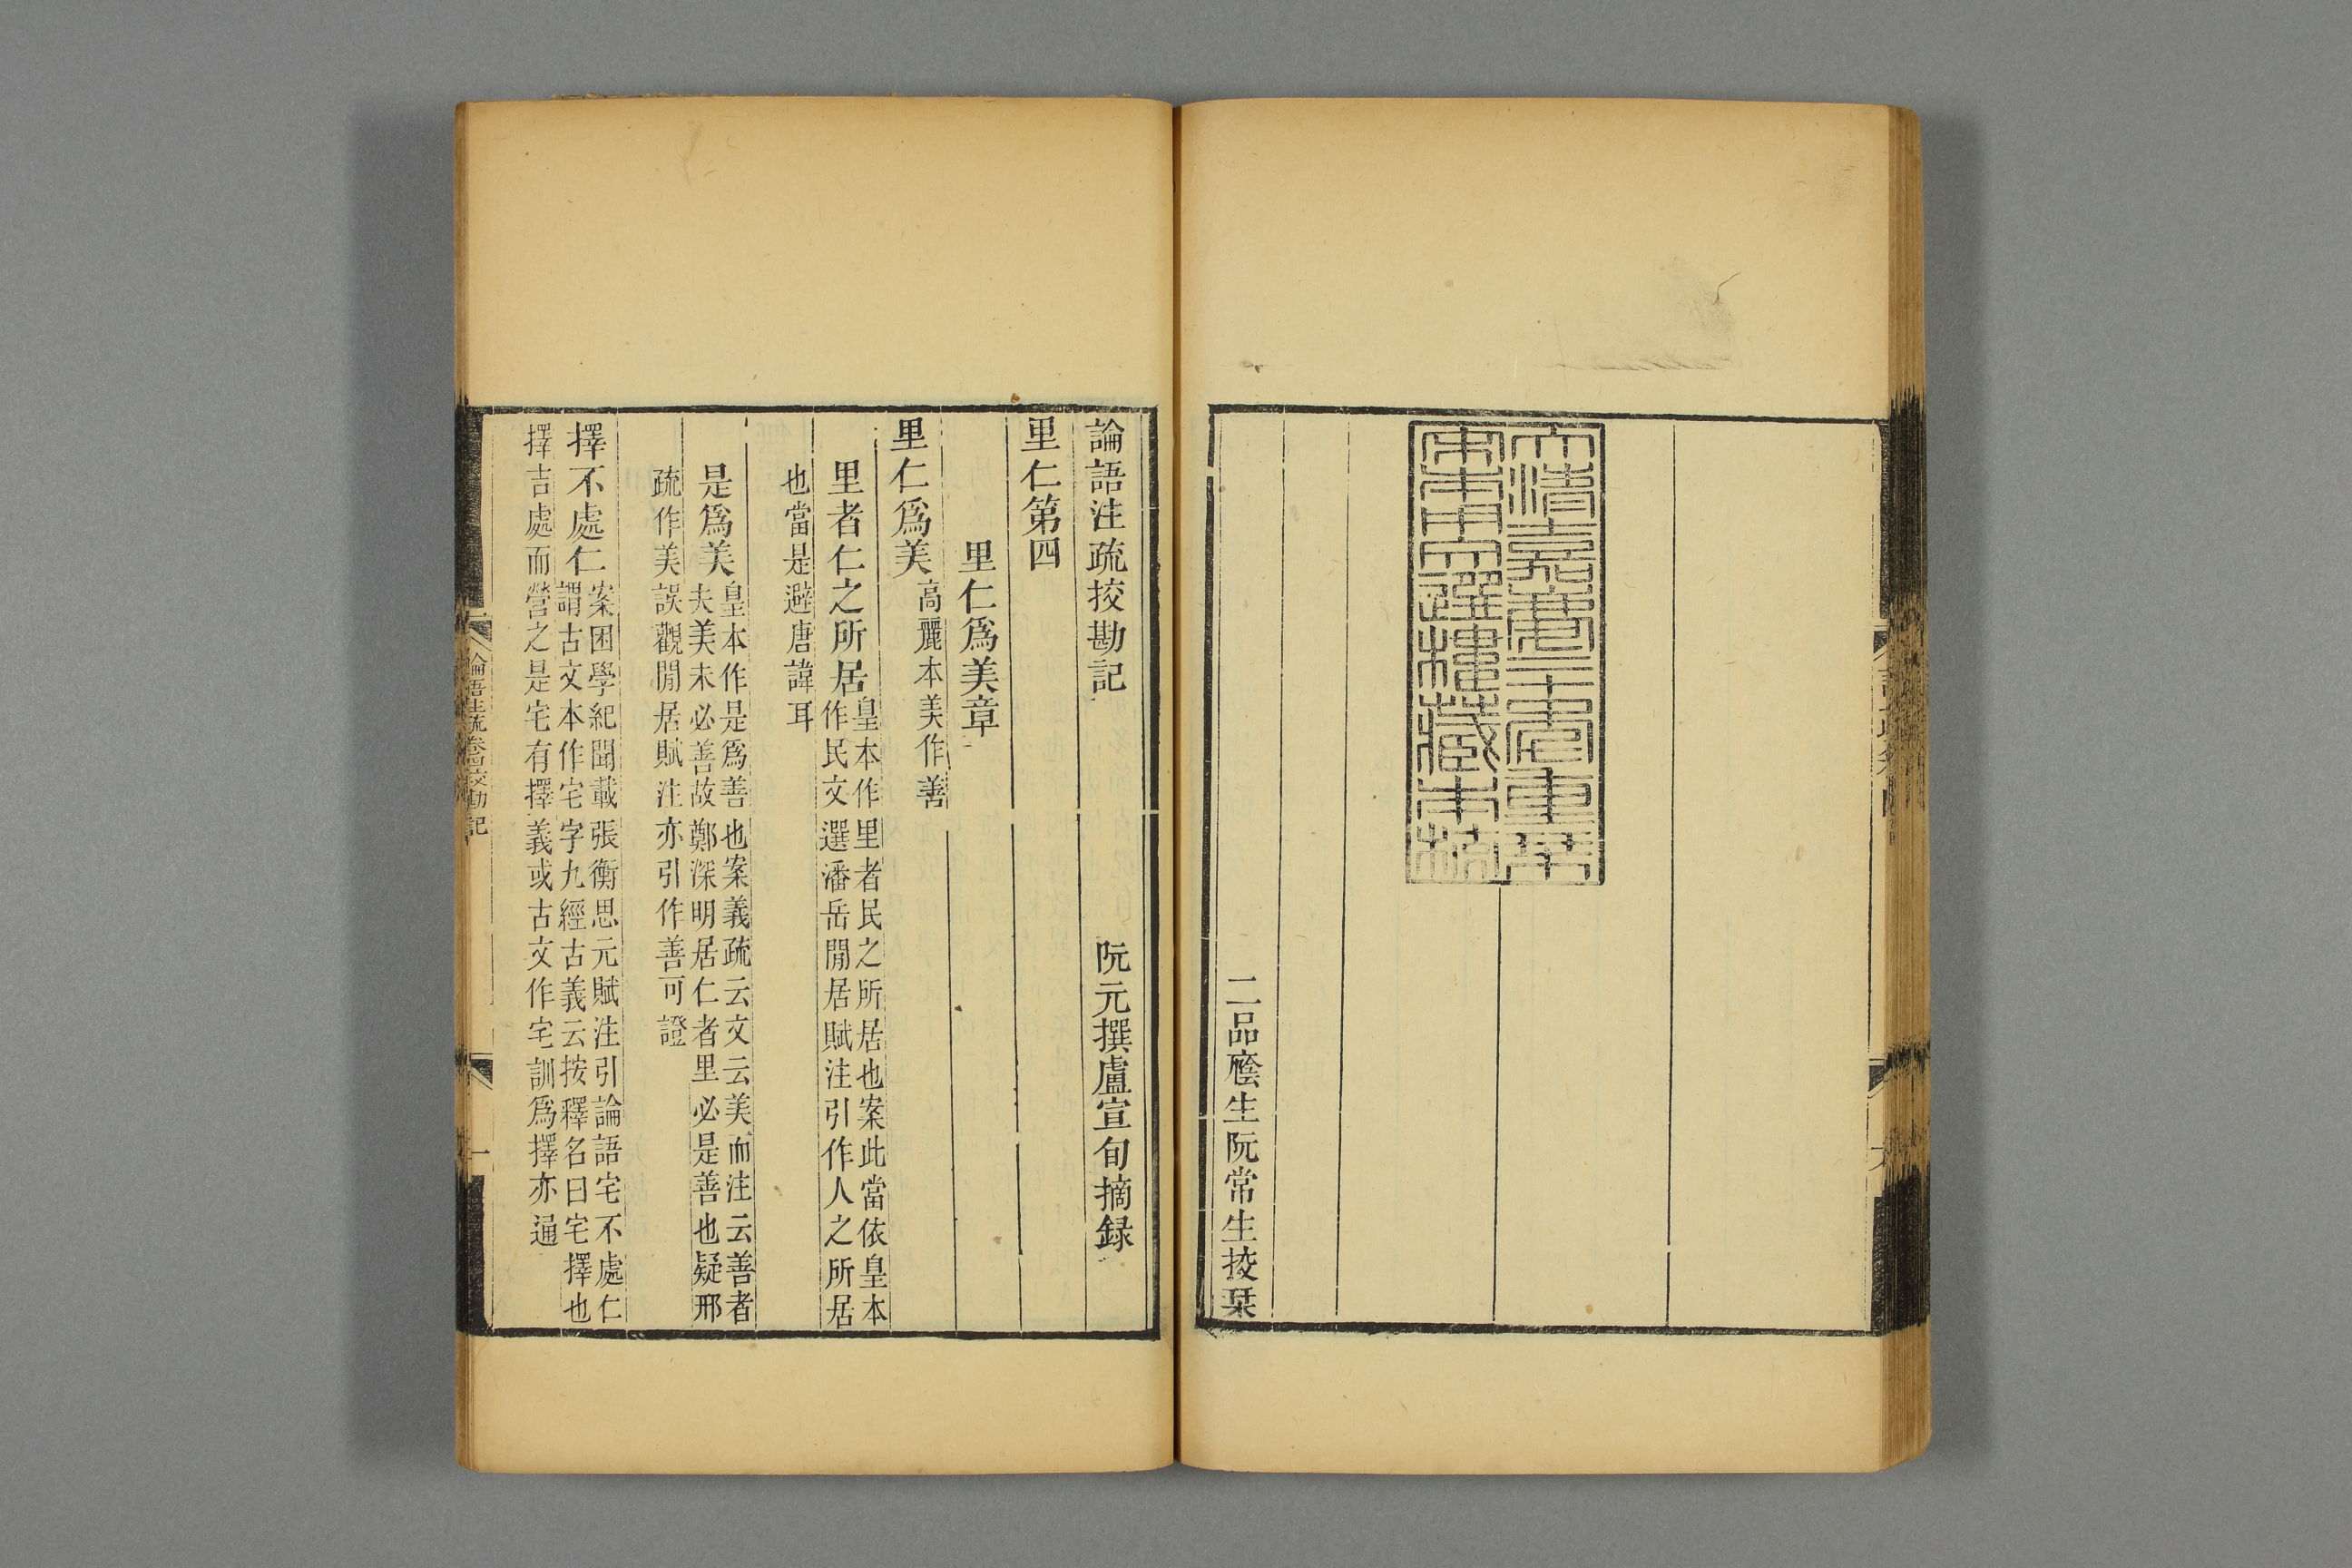 大清嘉慶二十年重栞
宋本文選樓藏本校
二品廕生阮常生挍栞
論語注疏挍勘記
阮元撰盧宣旬摘録
里仁第四
里仁爲美章
里仁爲美高麗本美作善
里者仁之所居皇本作里者民之所居也案此當依皇本
作民文選潘岳閒居賦注引作人之所居
也當是避唐諱耳
是爲美皇本作是爲善也案義疏云文云美而注云善者
夫美未必善故鄭深明居仁者里必是善也疑邢
疏作美誤觀閒居賦注亦引作善可證
擇不處仁案困學紀聞載張衡思元賦注引論語宅不處仁
謂古文本作宅字九經古義云按釋名曰宅擇也
擇吉處而營之是宅有擇義或古文作宅訓爲擇亦通
論語注疏卷四挍勘記
一